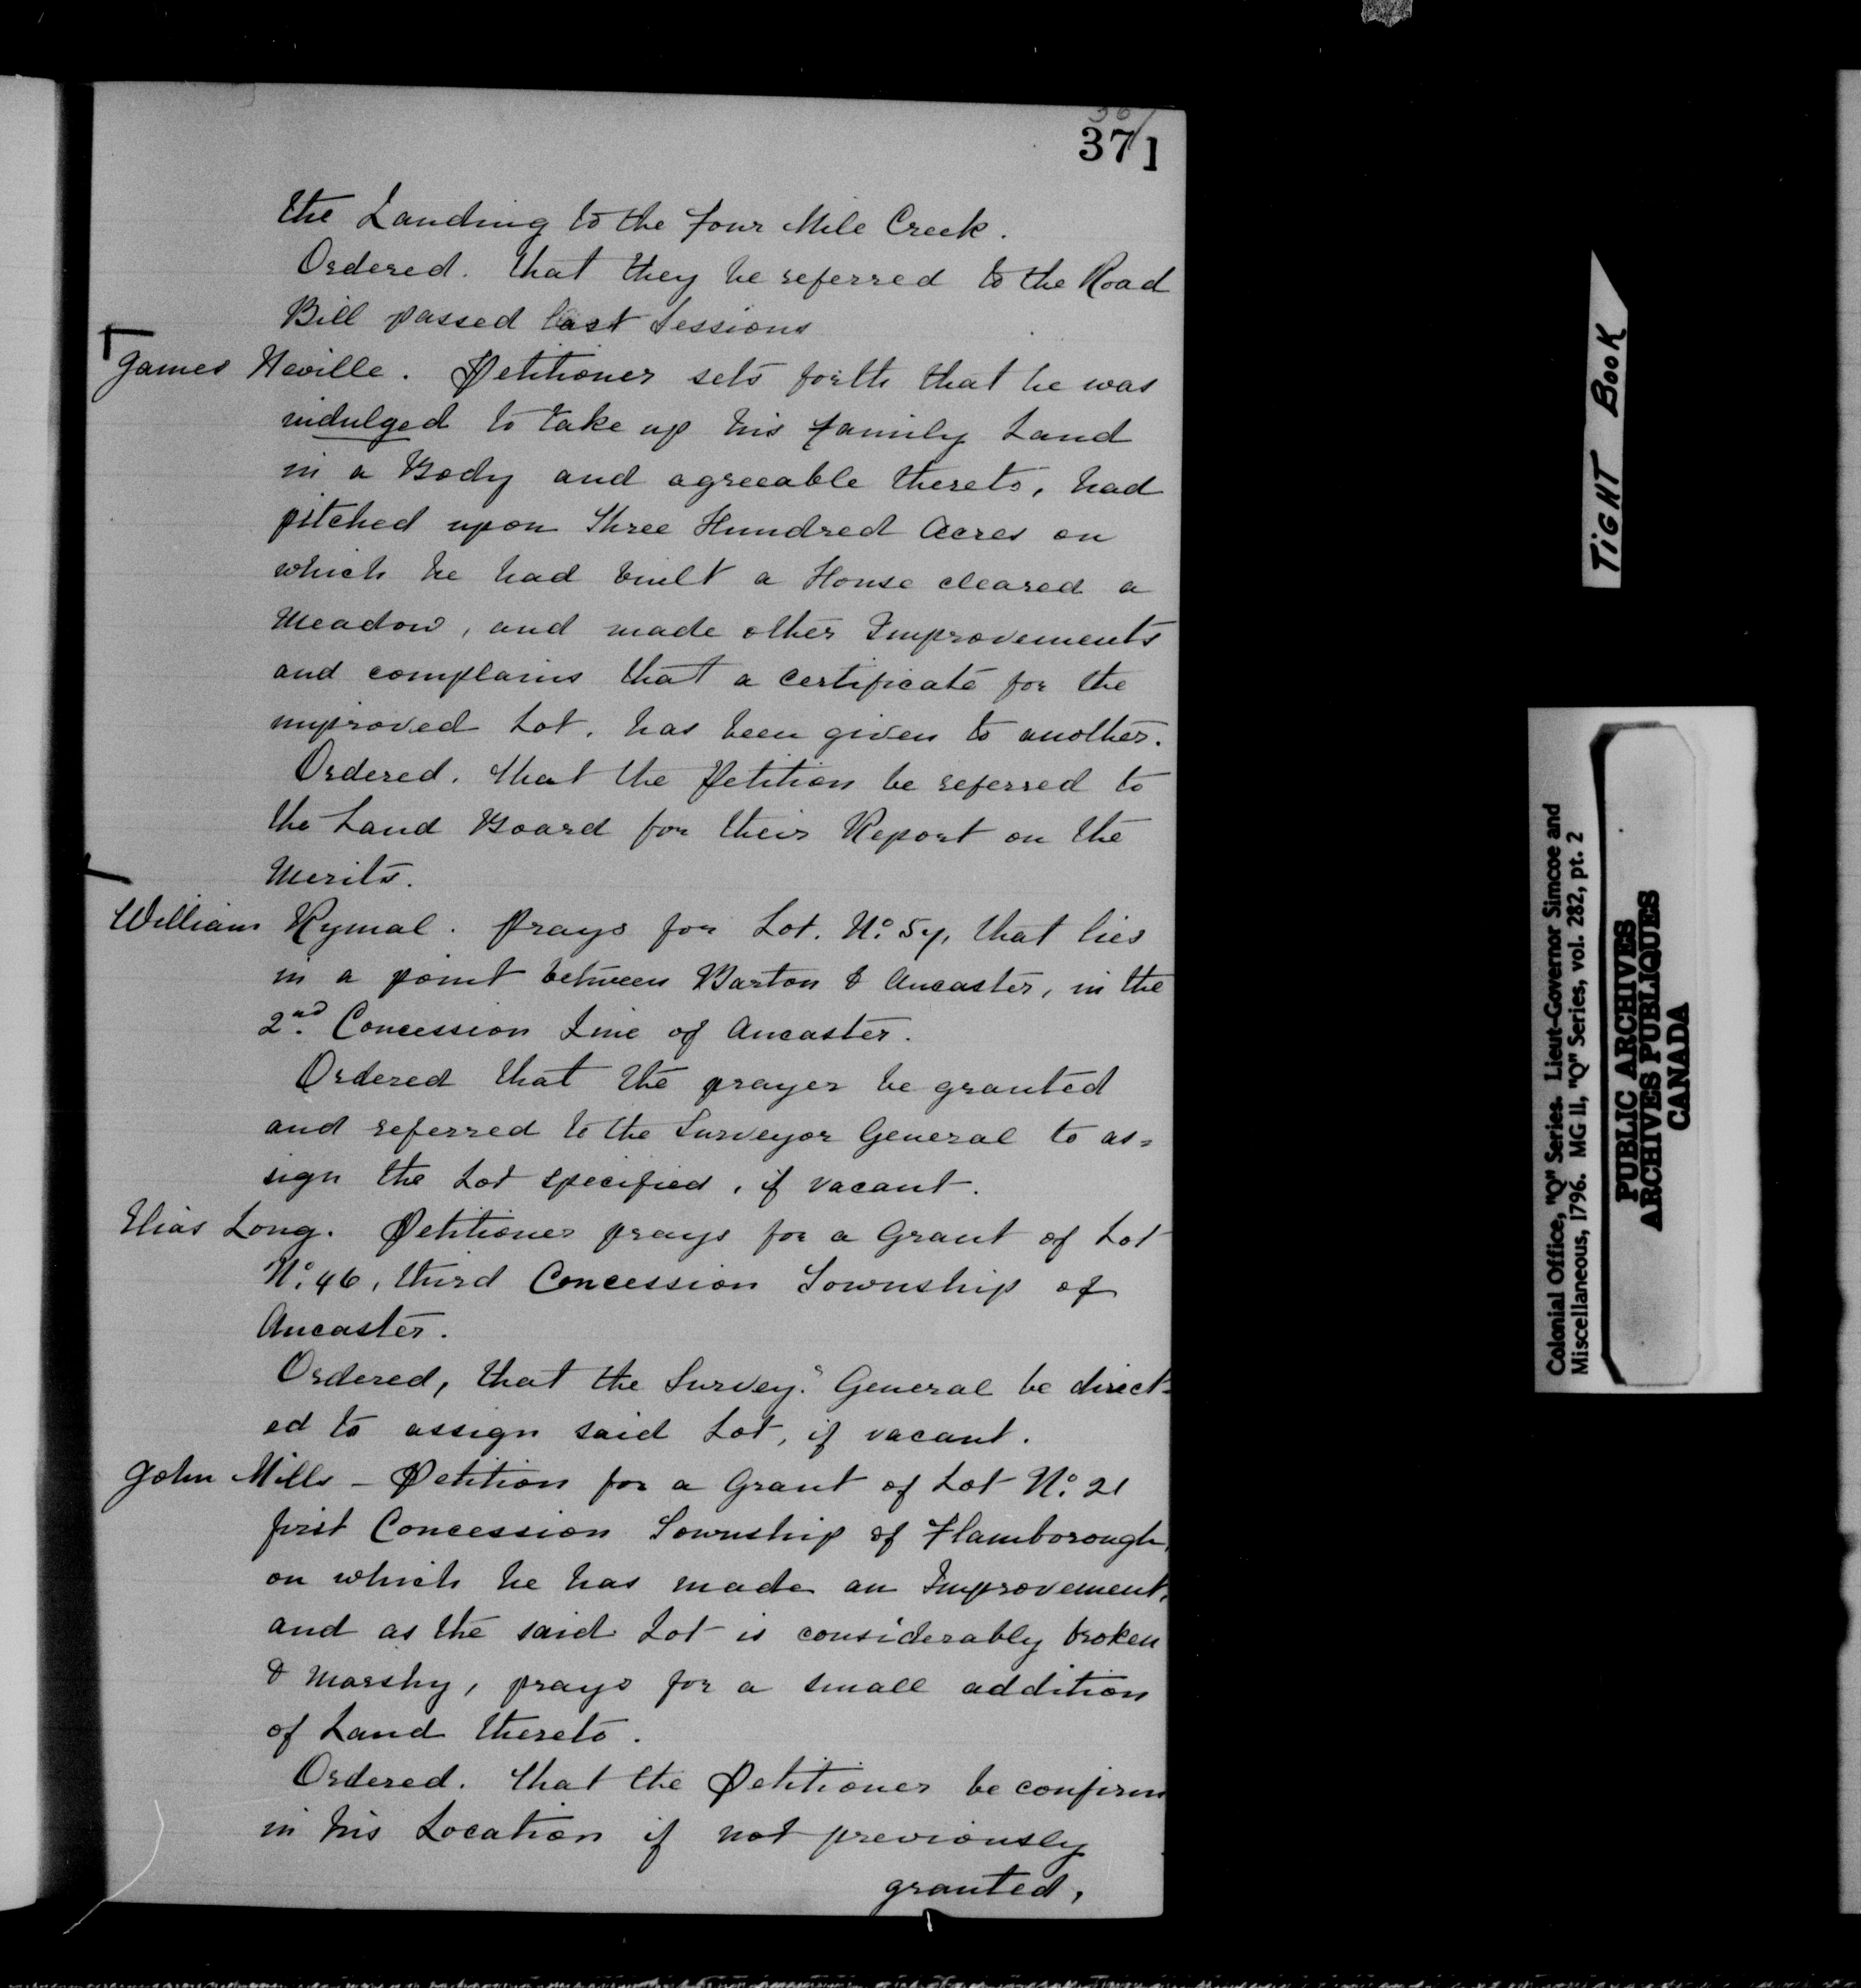 371
the Landing to the four Mile Creek.
Ordered. that they be referred to the Road
Bill passed last Sessions
James Neville. Petitioner sets forth that he was
indulged to take up his family Land
in a Body and agreeable thereto, had
pitched upon Three Hundred Acres on
which he had built a House cleared a
Meadow, and made other Improvements
and complains that a certificate for the
improved Lot, has been given to another.
Ordered. that the Petition be referred to
the Land Board for their Report on the
Merits.
William Rymal. Prays for Lot. No. 57, that lies
in a point between Barton & Ancaster, in the
2nd. Concession Line of Ancaster.
Ordered that the prayer be granted
and referred to the Surveyor General to as=
sign the Lot specified, if vacant.
Elias Long. Petitioner prays for a Grant of Lot
No. 46, third Concession Township of
Ancaster.
Ordered, that the Survey.r General be direct-
ed to assign said Lot, if vacant.
John Mills - Petition for a Grant of Lot No. 21
first Concession Township of Flamborough,
on which he has made an Improvement,
and as the said Lot is considerably broken
& Marshy, prays for a small addition
of Land thereto.
Ordered. that the Petitioner be confirm
in his Location if not previously
granted,
TIGHT BOOK
Colonial Office, "Q" Series. Lieut-Governor Simcoe and
Miscellaneous, 1796. MG 11, "Q" Series, vol. 282, pt. 2
PUBLIC ARCHIVES
ARCHIVES PUBLIQUES
CANADA